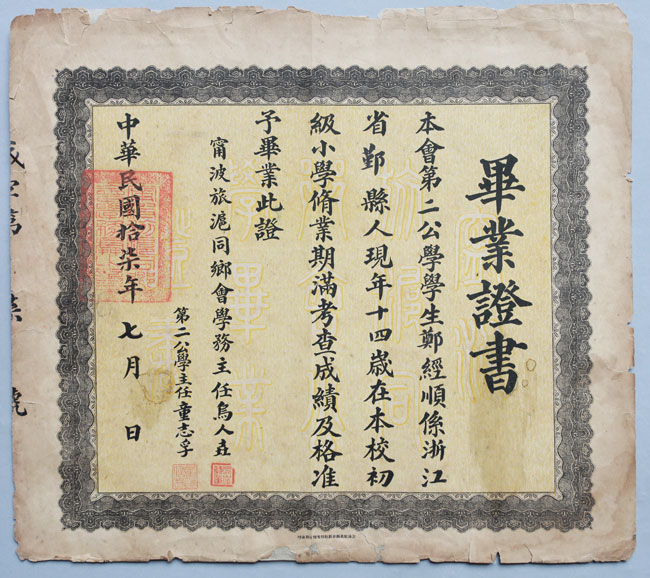 畢業證書
本會第二公學學生鄭經順係浙江
省鄞縣人現年十四歲在本校初
級小學脩業期滿考查成績及格准
予畢業此證
甯波旅滬同鄉會學務主任烏人垚
第二公學主任童志孚
中華民國拾柒年七月 日